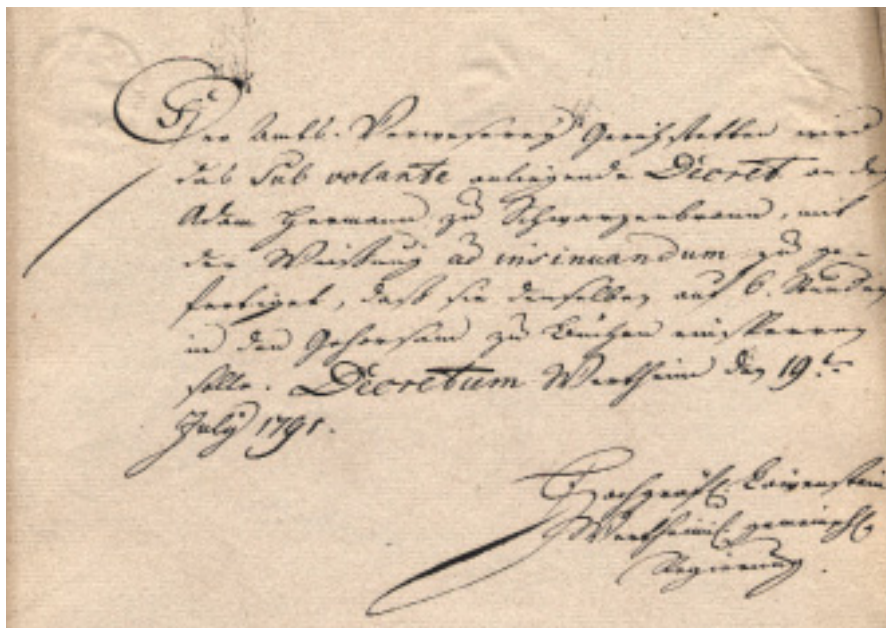 Der Amts-Verweserey Gerichstetten wird
das sub volante anliegende Decret an den
Adam Hermann zu Schwarzenbrunn, mit
der Weisung ad insinuandum zu ge-
fertiget, daß sie denselben auf 6. Stunden
in den Gehorsam zu Buchen einsperren
solle. Decretum Wertheim den 19ten
July 1791.
Hochgräfl. Löwenstein
Wertheimis. gemeinsch.
Regierung.